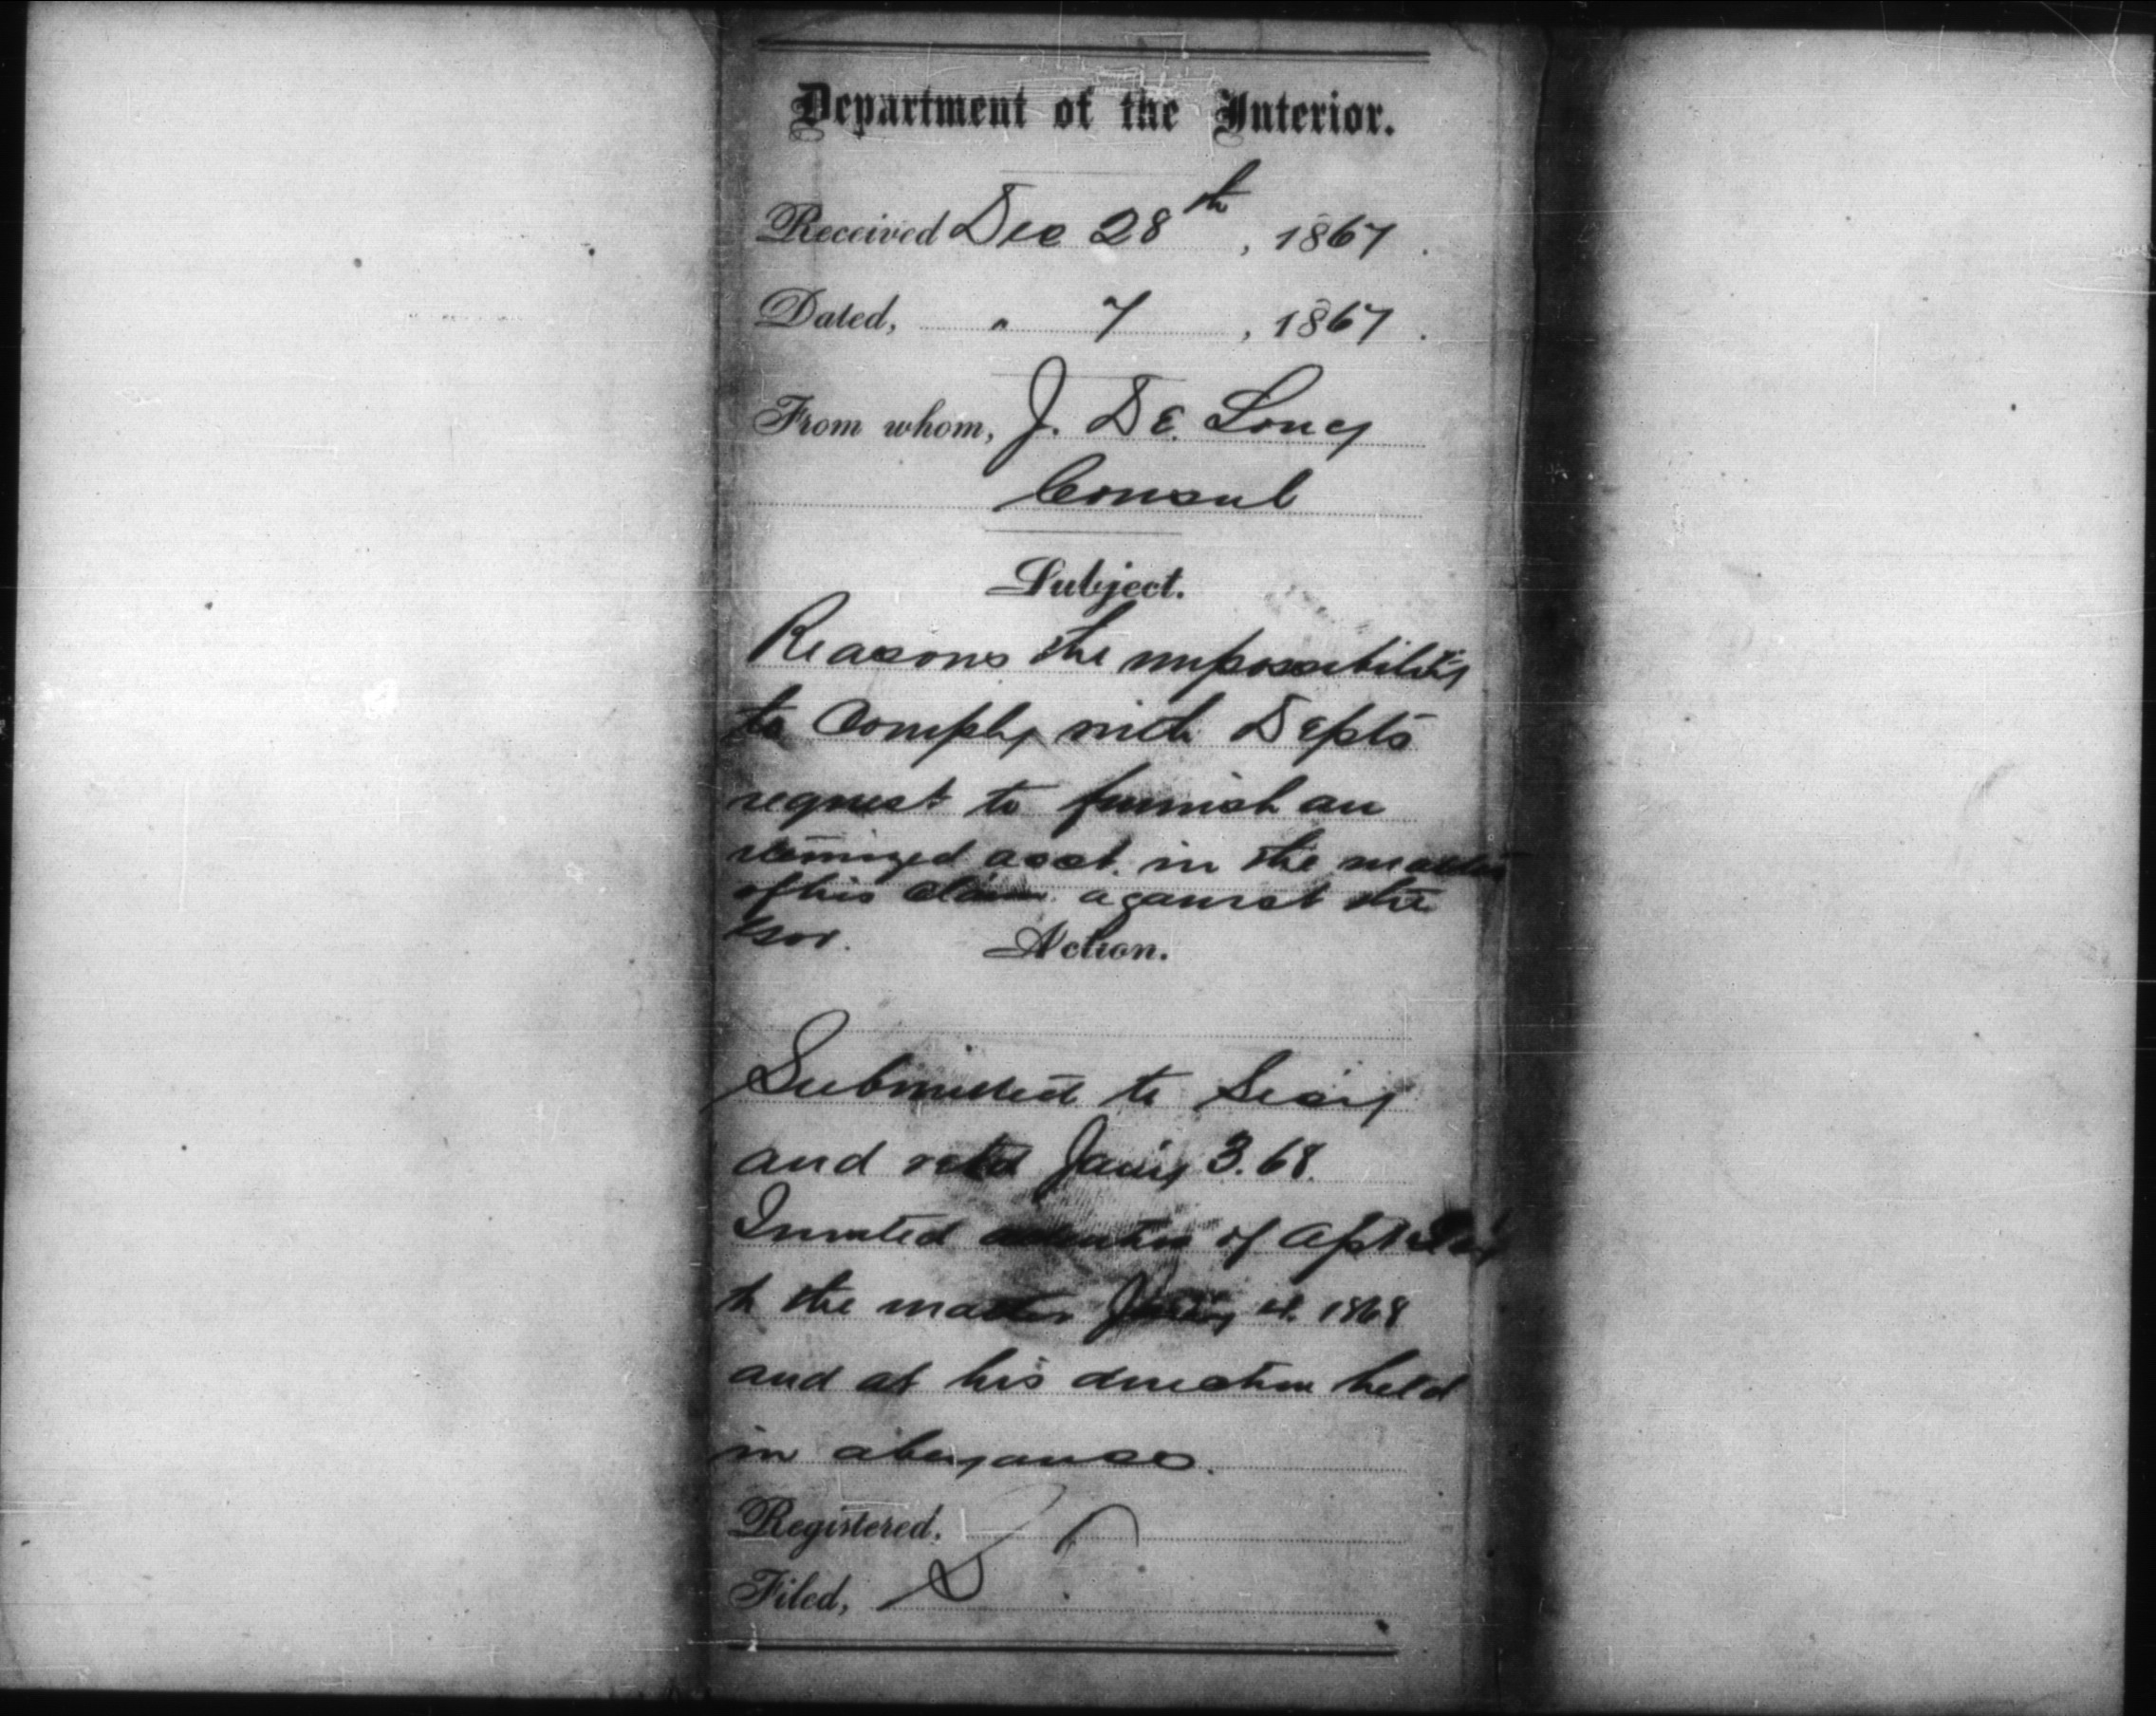 Department of the Interior.
Received Dec 28th, 1867.
Dated, " 7, 1867.
From whom, J. De Long
Consul
Subject.
Reasons the impossibility
to Comply with Depts
request to furnish an
itemized acct. in the matter
of his claim against the
Gov. Action.
Submitted to Secy
and retd Jany 3. 68.
Invited attention of Asst Secy
to the matter Jany 4. 1868
and at his direction held
in abeyance.
Registered,
Filed,